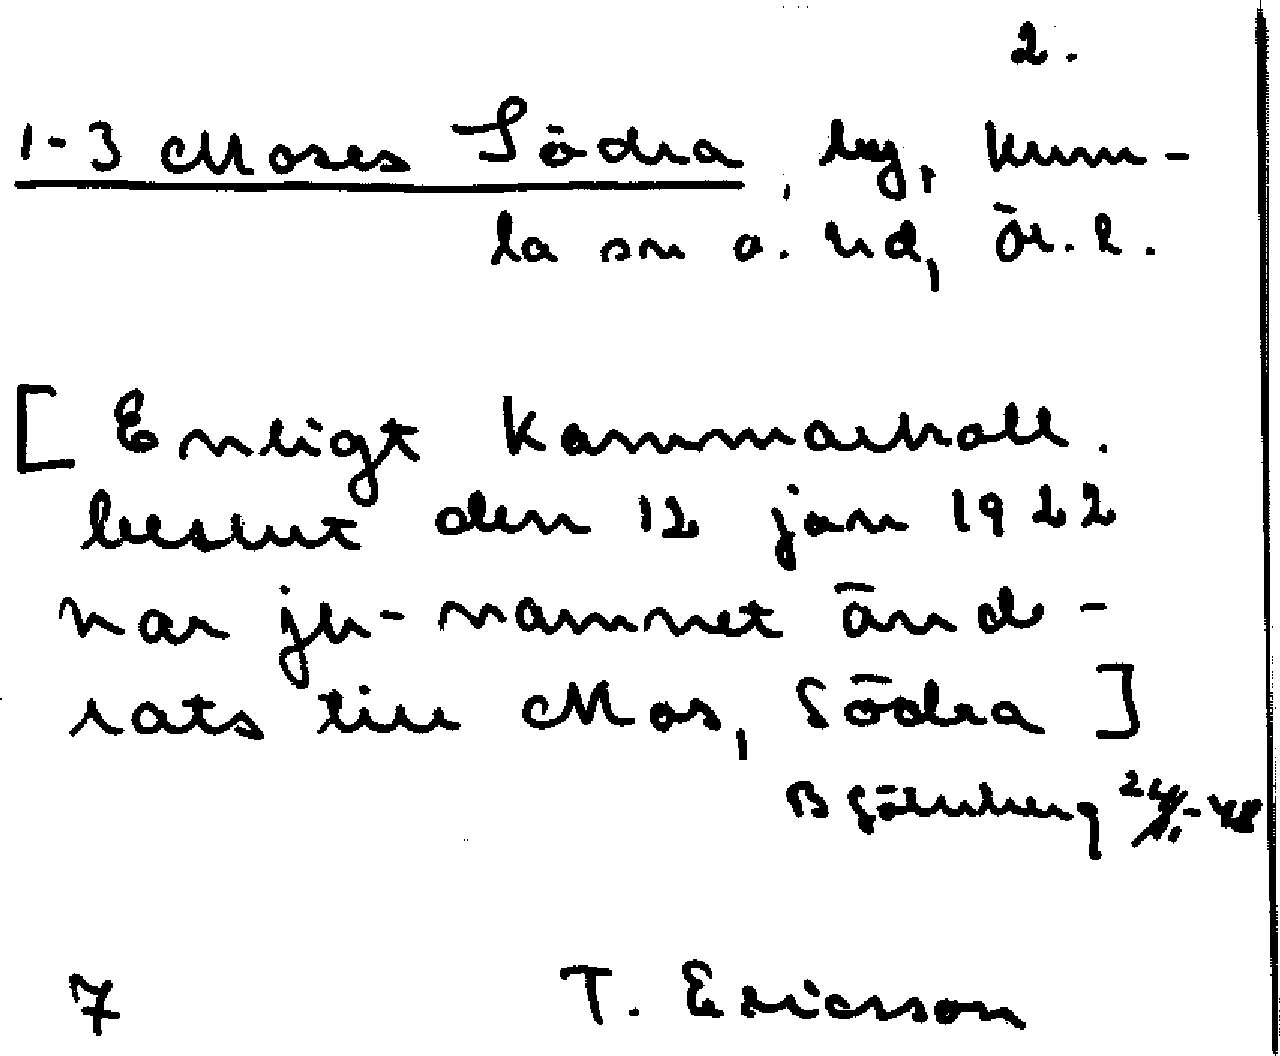 2.
1-3 Moses Södra, by, Kum-
la sn o. hd, Ör. l.
[Enligt Kammarkoll.
beslut den 12 jan 1922
har jb-namnet änd-
rats till Mos, Södra]
B 24/1.-48
7 T. Ericsson